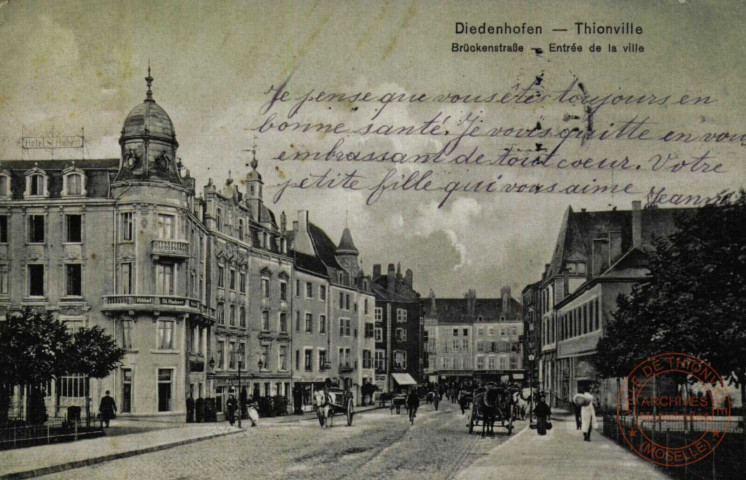 Diedenhofen — Thionville
Brückenstraße — Entrée de la ville
Je pense que vous êtes toujours en
bonne santé. Je vous quitte en vous
embrassant de tout coeur. Votre
petite fille qui vous aime Jeanne
Hotel St. Hubert
St. Hubert
VILLE DE THIONVILLE
ARCHIVES
(MOSELLE)